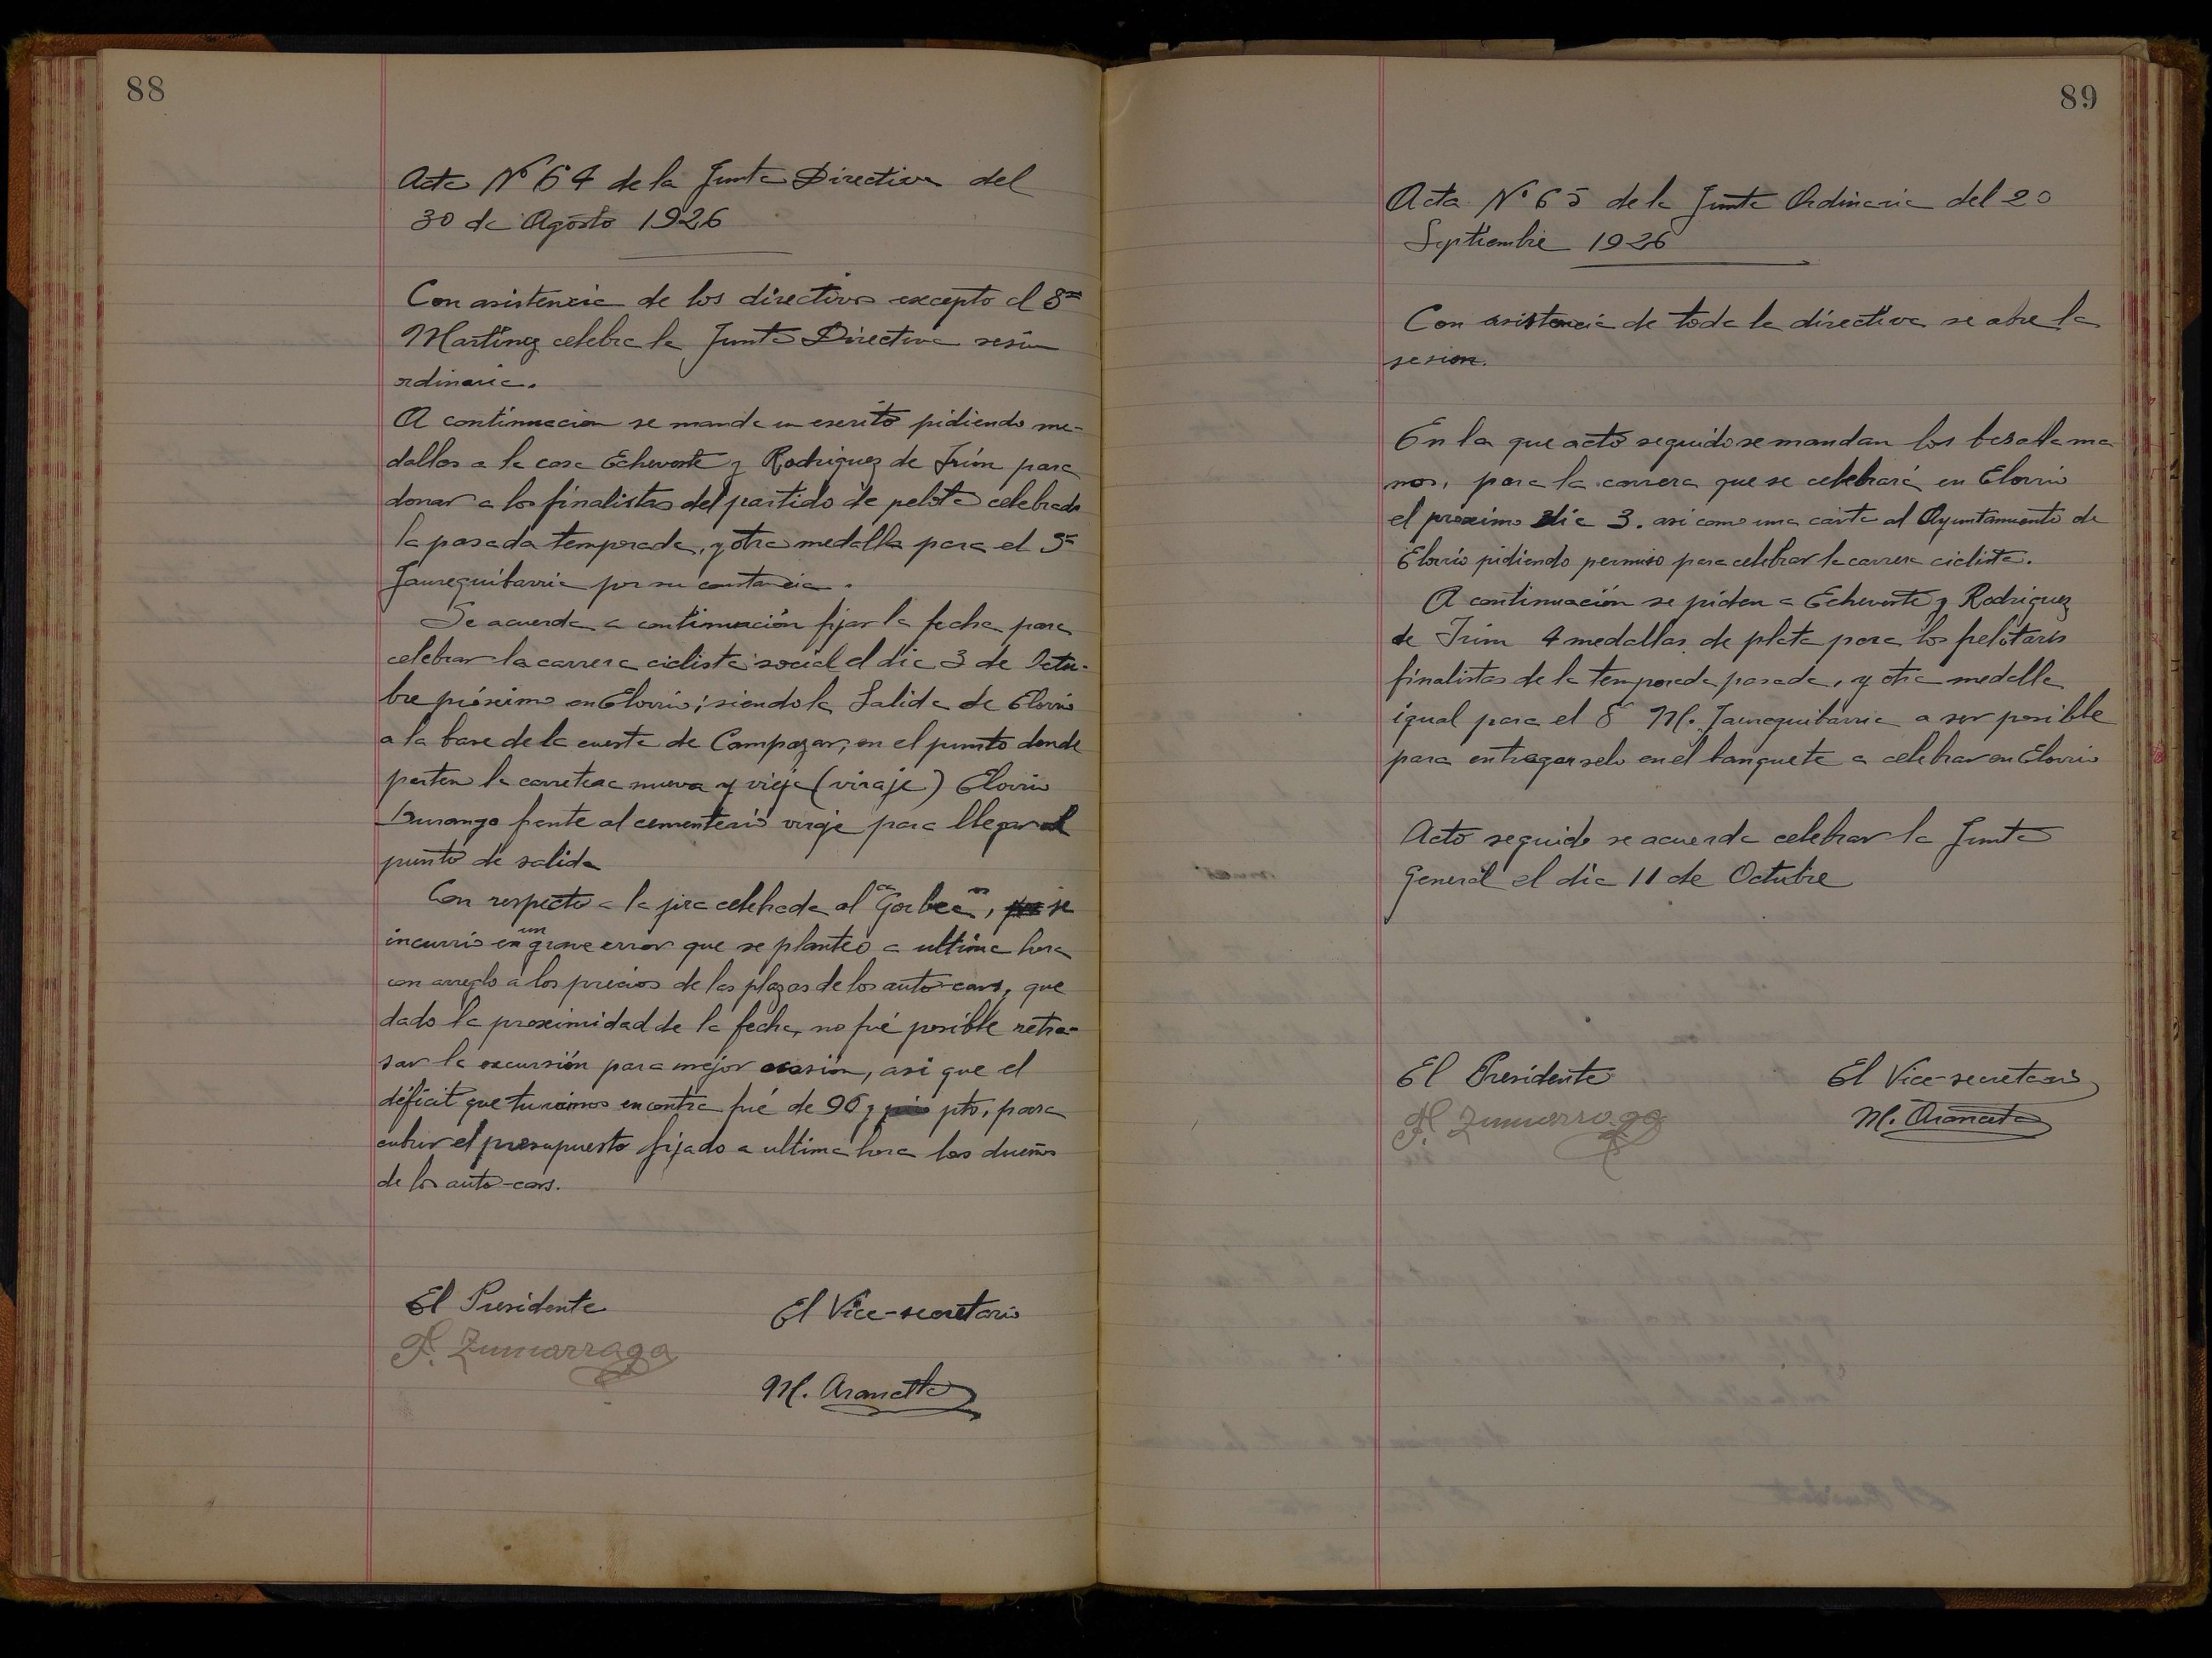 88
Acta Nº 64 de la Junta Directiva del
30 de Agosto 1926
Con asistencia de los directivos excepto el Sr
Martinez celebra la Junta Directiva sesión
ordinaria.
A continuacion se manda un escrito pidiendo me-
dallas a la casa Echeveste y Rodriguez de Irún para
donar a los finalistas del partido de pelota celebrado
la pasada temporada, y otra medalla para el Sr
Jaureguibarria por su constancia.
Se acuerda a continuación fijar la fecha para
celebrar la carrera ciclista social el dia 3 de Octu-
bre próximo en Elorrio; siendo la Salida de Elorrio
a la base de la cuesta de Campazar; en el punto donde
parten la carretera nueva y vieja (viraje) Elorrio
Durango frente al cementerio viraje para llegar al
punto de salida
Con respecto a la jira celebrada al Gorbea, se
incurrio en un grave error que se planteó a ultima hora
con arreglo a los precios de las plazas de los auto-cars, que
dado la proximidad de la fecha, no fué posible retra-
sar la excursión para mejor ocasión, asi que el
déficit que tuvimos en contra fué de 90 y pts, para
cubrir el presupuesto fijado a ultima hora los dueños
de los auto-cars.
El Presidente
El Vice-secretario
F. Zumarraga
M. Aranceta
89
Acta Nº 65 de la Junta Ordinaria del 20
Septiembre 1926
Con asistencia de toda la directiva se abre la
sesion.
En la que acto seguido se mandan los besalama
nos, para la carrera que se celebrará en Elorrio
el proximo dia 3. asi como una carta al Ayuntamiento de
Elorrio pidiendo permiso para celebrar la carrera ciclista.
A continuación se piden a Echeveste y Rodriguez
de Irún 4 medallas de plata para los pelotaris
finalistas de la temporada pasada, y otra medalla
igual para el Sr M. Jaureguibarria a ser posible
para entregarselo en el banquete a celebrar en Elorrio
Acto seguido se acuerda celebrar la Junta
General el dia 11 de Octubre
El Presidente
El Vice-secretario
F. Zumarraga
M. Aranceta